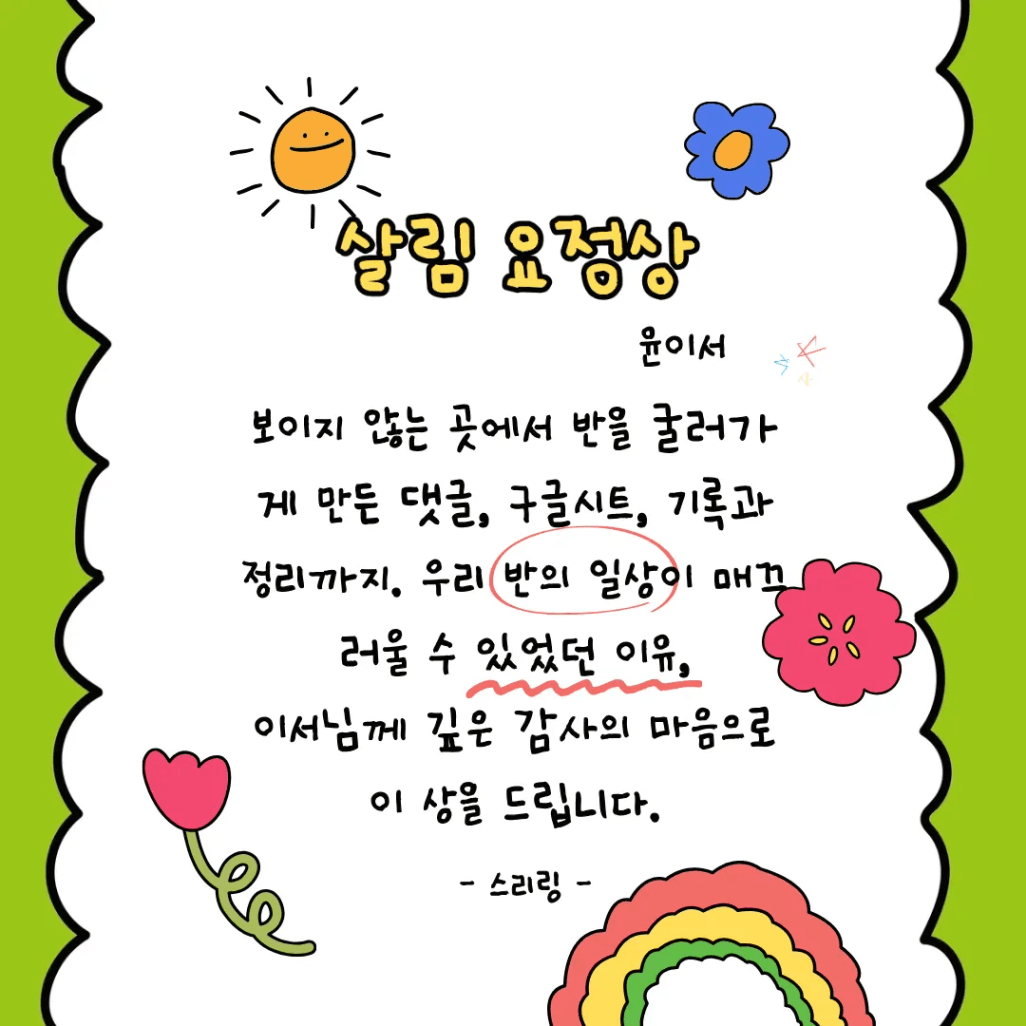 살림 요정상
윤이서
보이지 않는 곳에서 반을 굴러가
게 만든 댓글, 구글시트, 기록과
정리까지. 우리 반의 일상이 매끄
러울 수 있었던 이유,
이서님께 깊은 감사의 마음으로
이 상을 드립니다.
- 스리링 -